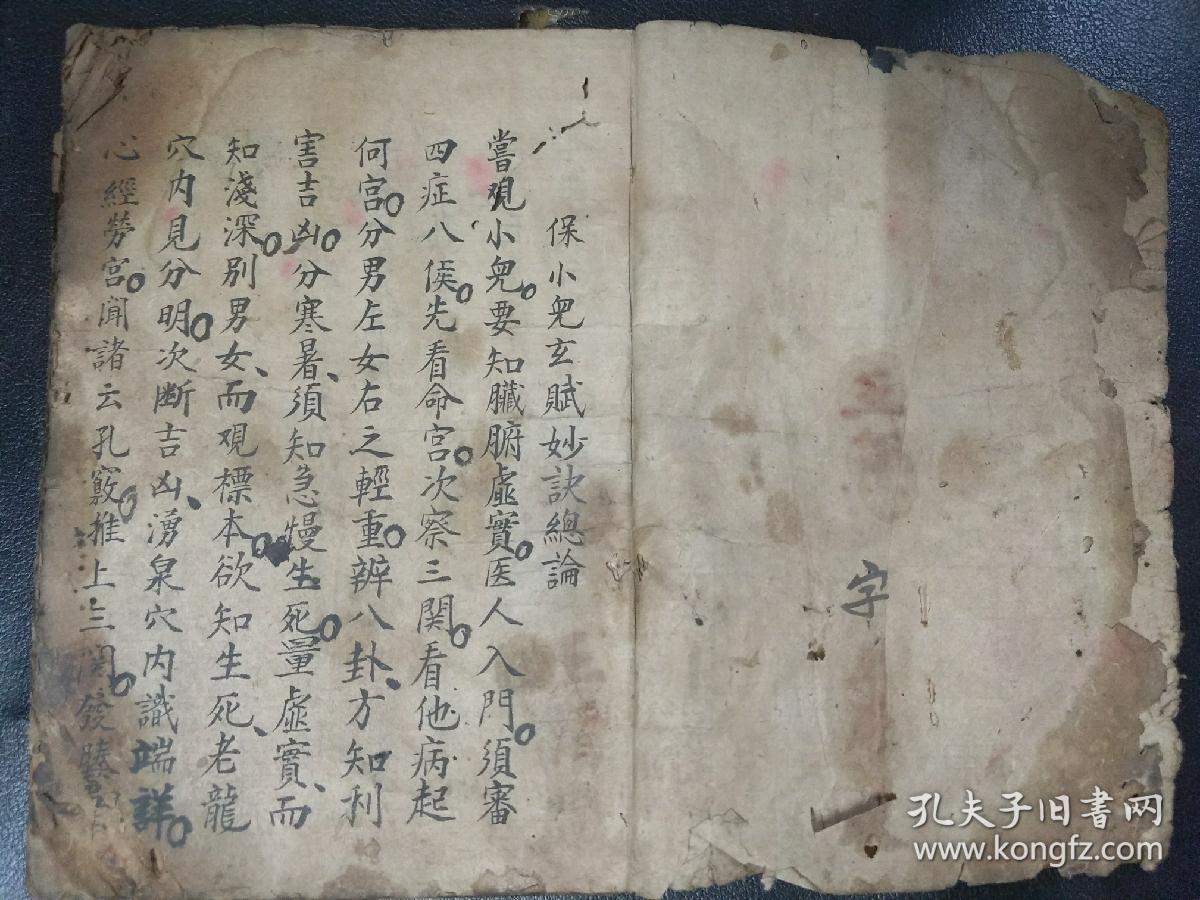 字
保小兒玄賦妙訣總論
嘗观小兒。要知臟腑虛實。医人入門。須審
四症八候。先看命宫。次察三関。看他病起
何宫。分男左女右之輕重。辨八卦、方知利
害吉凶。分寒暑、須知急慢生死。量虛實、而
知淺深。別男女、而观標本。欲知生死、老龍
穴内見分明。次断吉凶、湧泉穴内識端詳。
心經勞宫。聞諸云孔竅。推上三関。發
孔夫子旧書网
www.kongfz.com